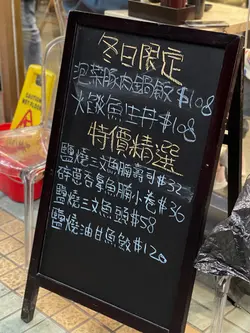 冬日限定
泡菜豚肉鍋餃 $108
火炙魚生丼 $108
特價精選
鹽燒三文魚腩壽司 $32
碎蔥吞拿魚腩小卷 $36
鹽燒三文魚頭 $58
鹽燒油甘魚鮫 $120
CAUTION